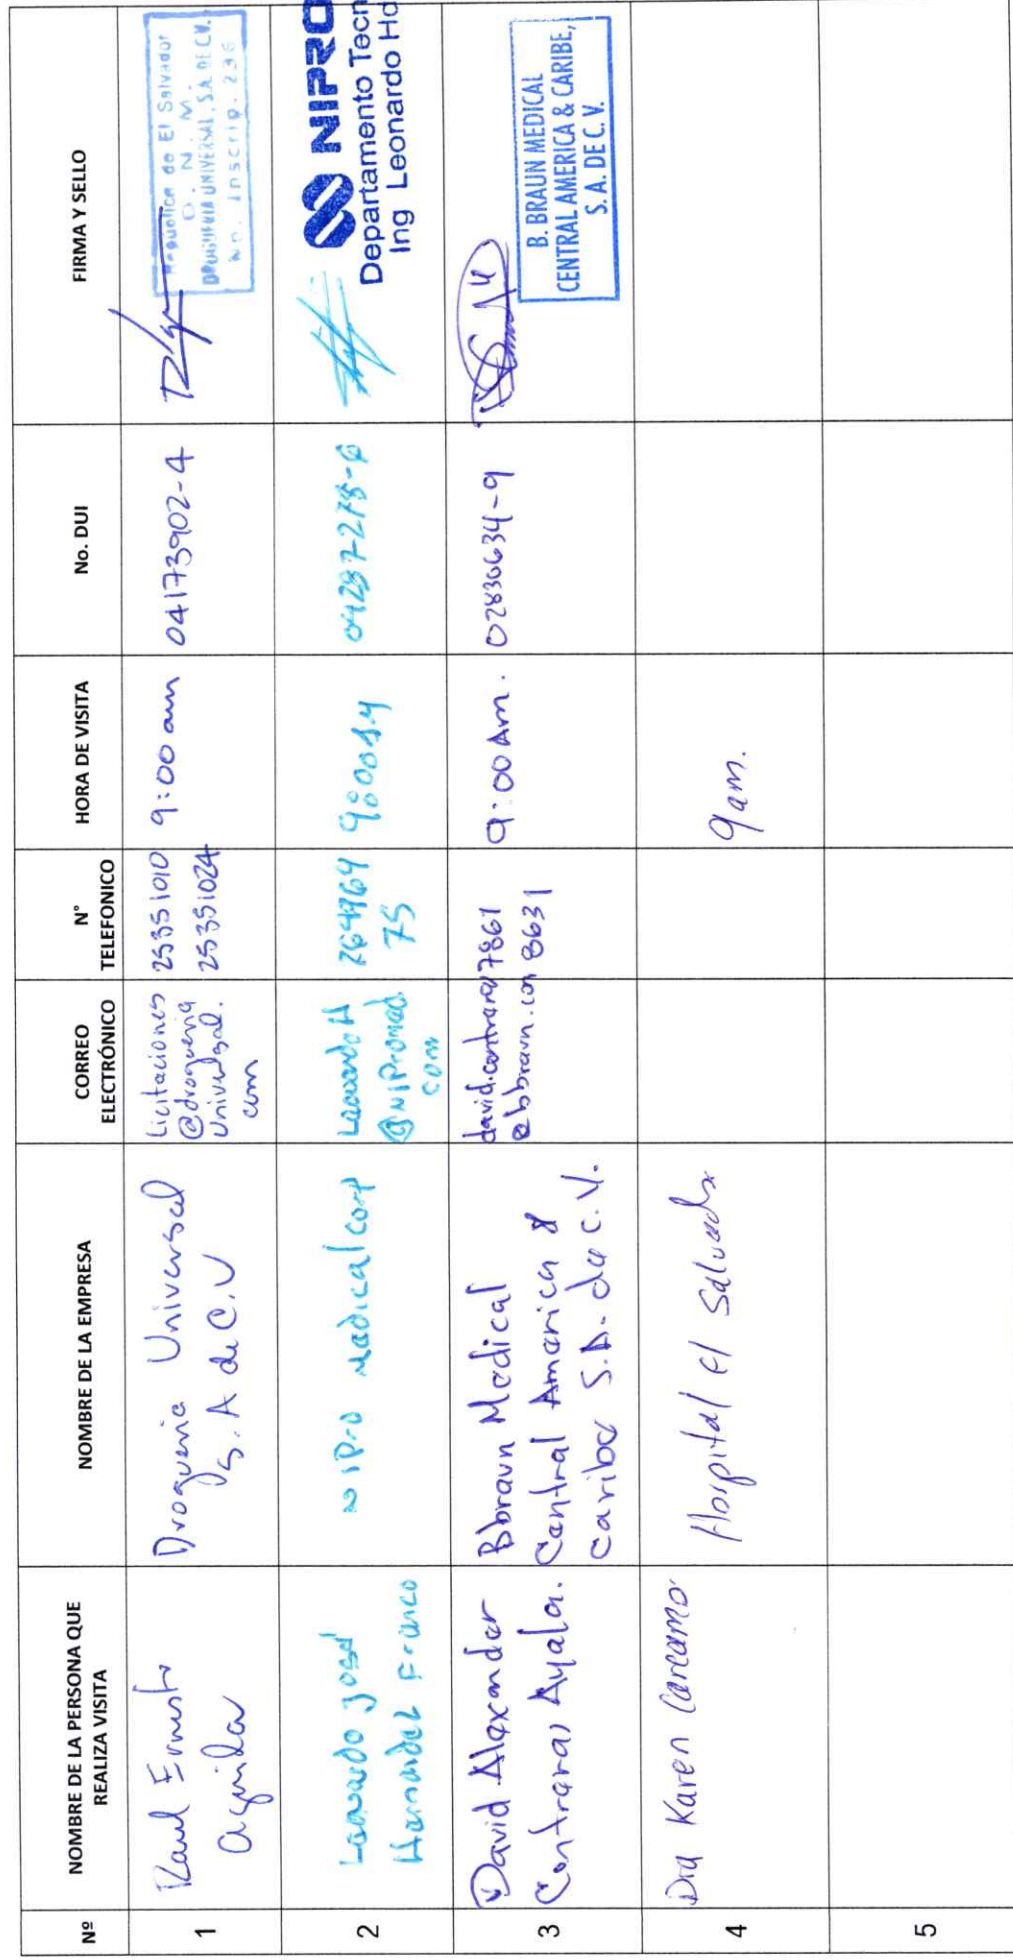 Nº
NOMBRE DE LA PERSONA QUE
REALIZA VISITA
NOMBRE DE LA EMPRESA
CORREO
ELECTRÓNICO
N°
TELEFONICO
HORA DE VISITA
No. DUI
FIRMA Y SELLO
1
Raul Ernesto
Aguilar
Drogueria Universal
S. A de C.V
Licitaciones
@drogueria
Universal.
com
25351010
25351024
9:00 am
04173902-4
Republica de El Salvador
D. N. M.
DROGUERIA UNIVERSAL, S.A. DE C.V.
No. Inscrip. 236
2
Leonardo José
Hernandez Franco
NIPRO Medical corp
LeonardoH
@NIPromed.
com
75
NIPRO
Departamento Tecn
Ing Leonardo He
3
David Alexander
Contreras Ayala.
Bbraun Medical
Central America &
caribe S.A. de C.V.
david.contreras
@bbraun.com
7861
8631
9:00 Am.
02830634-9
B. BRAUN MEDICAL
CENTRAL AMERICA & CARIBE,
S. A. DE C. V.
4
Dra Karen Carcamo
Hospital El Salvador
9am.
5